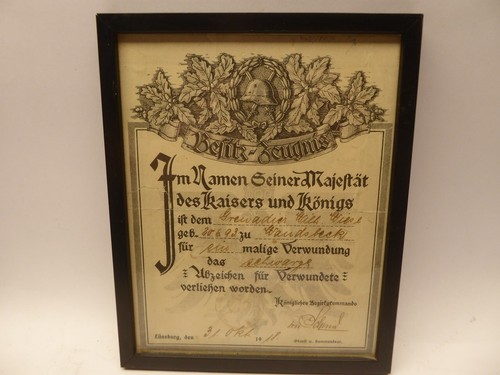 Besitz-Zeugnis
Im Namen Seiner Majestät
des Kaisers und Königs
ist dem Grenadier
geb. 30.6.93 zu Wandsbeck
für ein malige Verwundung
das schwarze
Abzeichen für Verwundete
verliehen worden.
Königliches Bezirkskommando
Lüneburg, den 31. Okt. 1918